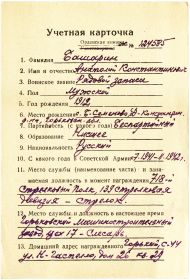 Учетная карточка
№ 124585
1. Фамилия Башарин
2. Имя и отчество Анатолий Константинович
3. Воинское звание Рядовой запаса
4. Пол Мужской
5. Год рождения 1912
6. Место рождения
Горьковской обл.
7. Партийность (с какого года) Беспартийный
8. Образование Низшее
9. Национальность Русский
10. С какого года в Советской Армии 1941 1942 г.
11. Место службы (наименование части) и занимаемая должность в момент награждения 718
стрелковый полк, 139 стрелковая
дивизия - стрелок
12. Место службы и должность в настоящее время
Горьковский машиностроительный
завод, цех 17 - слесарь
13. Домашний адрес награжденного Горький, С-44